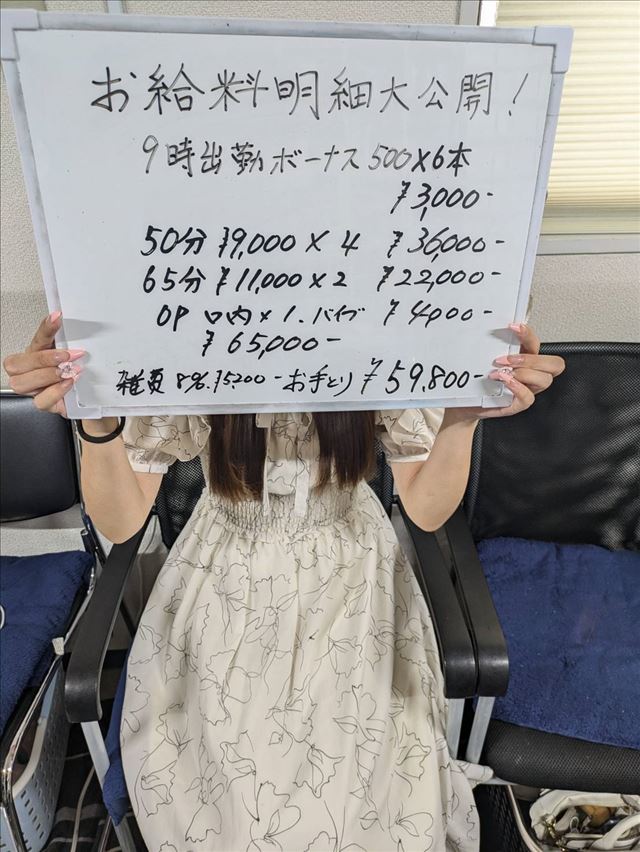 お給料明細大公開！
9時出勤ボーナス 500×6本
¥3,000-
50分 ¥9,000 × 4 ¥36,000-
65分 ¥11,000 × 2 ¥22,000-
OP 口内×1. バイブ ¥4000-
¥65,000-
雑費 8% ¥5200- お手とり ¥59.800-